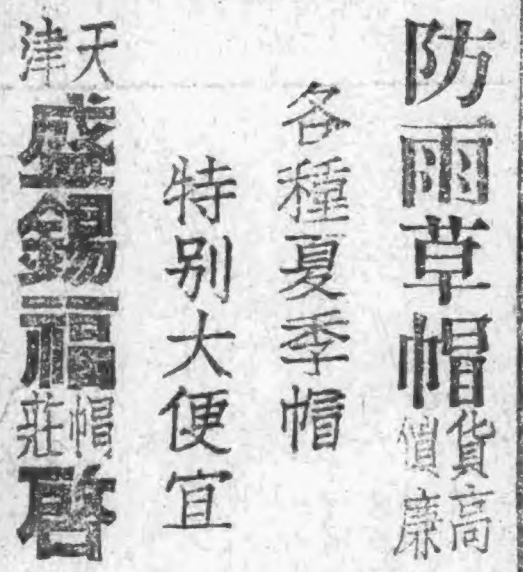 防雨草帽 貨高價廉
各種夏季帽
特别大便宜
天津盛錫福帽莊啓